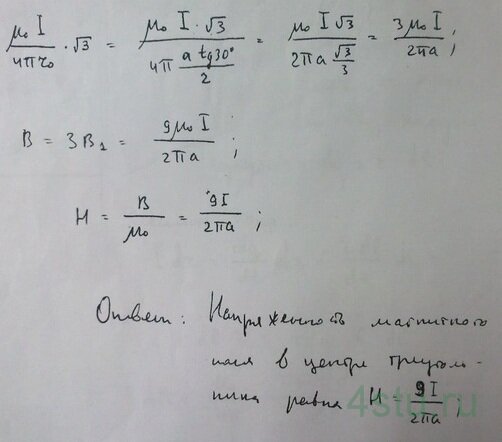 μ₀ I / 4π r₀ · √3 = μ₀ I · √3 / 4π (a tg30° / 2) = μ₀ I √3 / 2π a (√3 / 3) = 3 μ₀ I / 2π a ;
B = 3B₁ = 9 μ₀ I / 2π a ;
H = B / μ₀ = 9 I / 2π a ;
Ответ: Напряженность магнитного
поля в центре треуголь-
ника равна H = 9 I / 2π a ;
4stu.ru